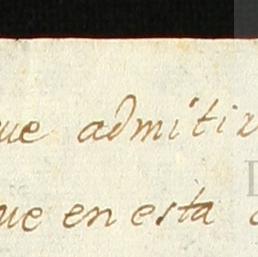 que admitir
que en esta